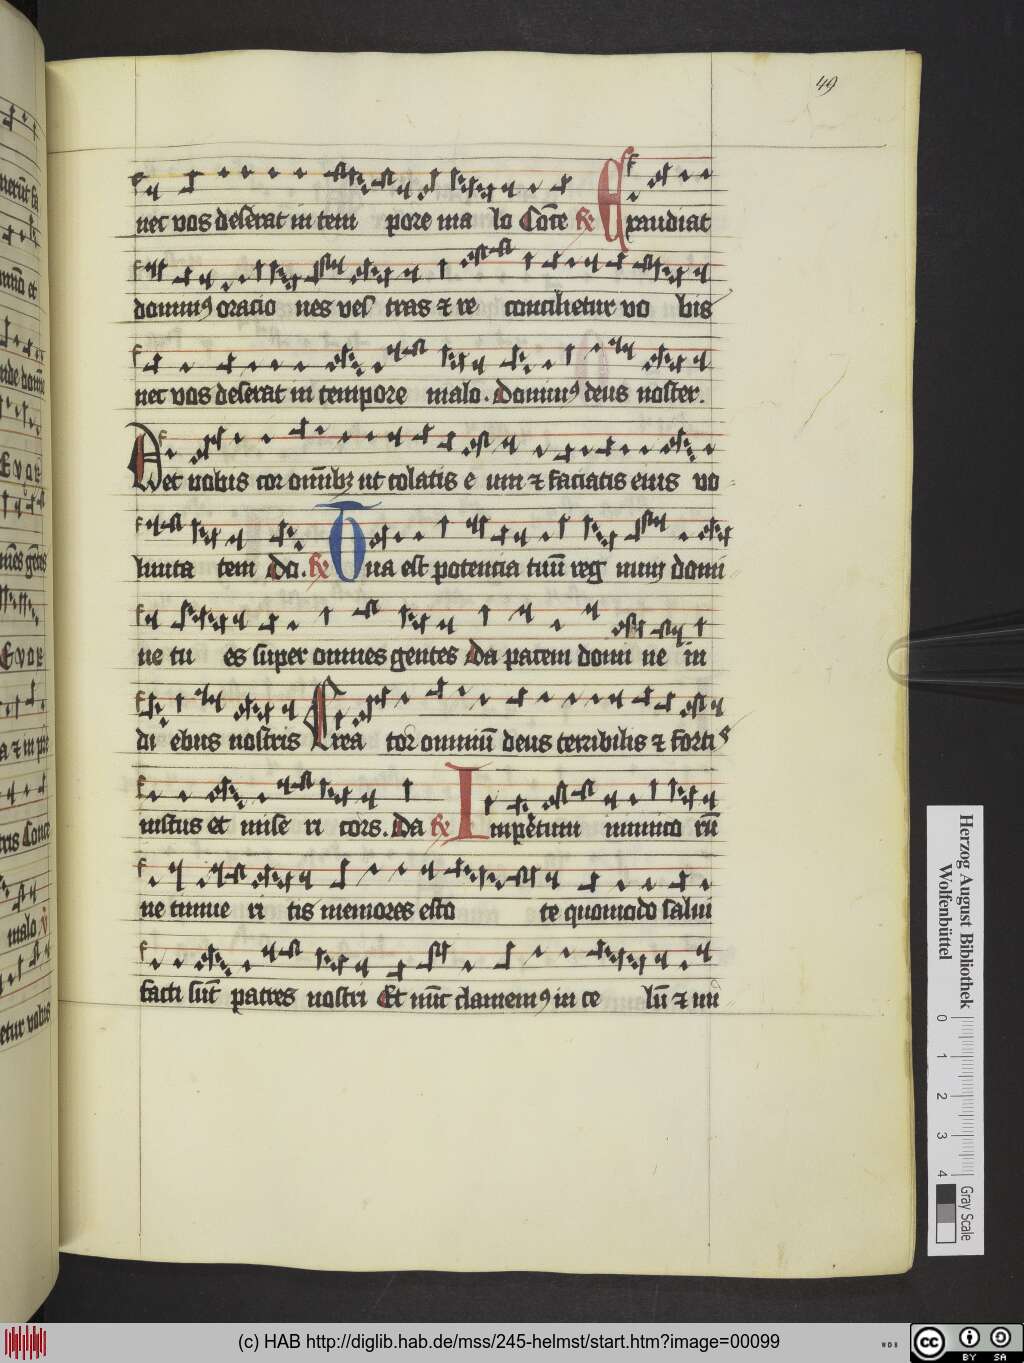 49
nec vos deserat in tem pore ma lo Co̅te ℟ Exaudiat
dominꝰ oracio nes ves tras ⁊ re concilietur vo bis
nec vos deserat in tempore malo. Dominꝰ deus noster.
Det vobis cor om̅ibꝫ ut colatis e um ⁊ faciatis eius vo
lunta tem Do. ℟ Tua est potencia tuu̅ reg num domi
ne tu es super omnes gentes Da pacem domi ne in
di ebus nostris Crea tor omniu̅ deus terribilis ⁊ forti s
iustus et mise ri cors. Da ℟ Impetum inimico ru̅
ne timue ri tis memores esto te quomodo salui
facti su̅t patres nostri Et nu̅c clamemꝰ in ce lu̅ ⁊ mi
malo
Herzog August Bibliothek
Wolfenbüttel
0 1 2 3 4
Gray Scale
(c) HAB http://diglib.hab.de/mss/245-helmst/start.htm?image=00099
WDB
cc BY SA